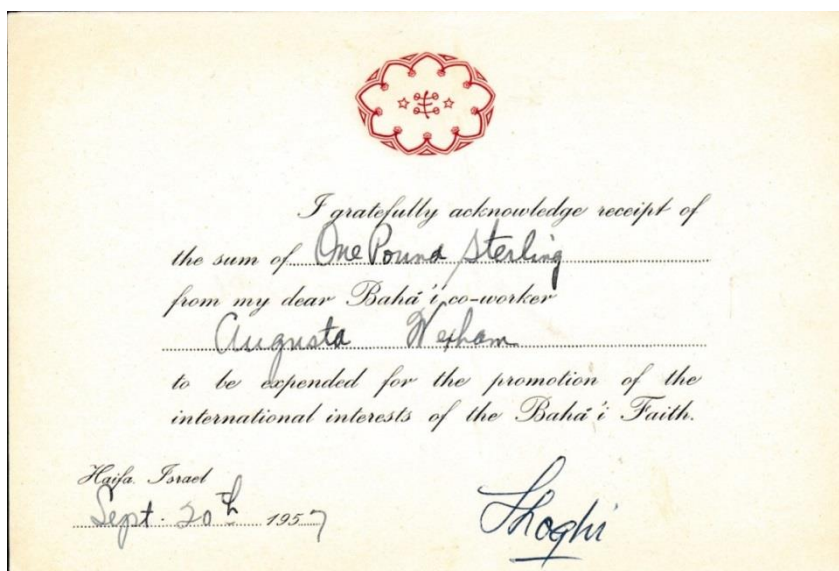 I gratefully acknowledge receipt of
the sum of One Pound Sterling
from my dear Bahá'í co-worker
Augusta Wexham
to be expended for the promotion of the
international interests of the Bahá'í Faith.
Haifa. Israel
Sept. 20th 1957
Shoghi